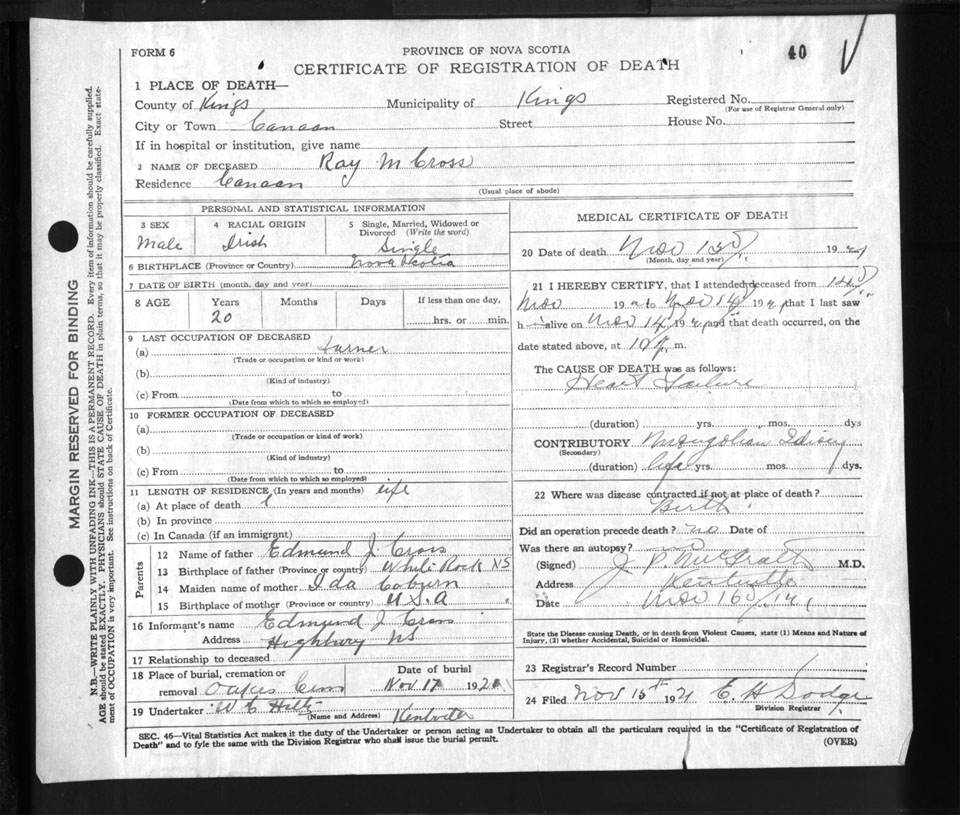 FORM 6
PROVINCE OF NOVA SCOTIA
40
CERTIFICATE OF REGISTRATION OF DEATH
1 PLACE OF DEATH—
County of Kings Municipality of Kings Registered No.
(For use of Registrar General only)
City or Town Canaan Street House No.
If in hospital or institution, give name
2 NAME OF DECEASED Ray M Cross
Residence Canaan
(Usual place of abode)
PERSONAL AND STATISTICAL INFORMATION
3 SEX 4 RACIAL ORIGIN 5 Single, Married, Widowed or
Divorced (Write the word)
Male Irish Single
6 BIRTHPLACE (Province or Country) Nova Scotia
7 DATE OF BIRTH (month, day and year)
8 AGE Years Months Days If less than one day,
20 hrs. or min.
9 LAST OCCUPATION OF DECEASED
(a) Farmer
(Trade or occupation or kind or work)
(b)
(Kind of industry)
(c) From to
(Date from which to which so employed)
10 FORMER OCCUPATION OF DECEASED
(a)
(Trade or occupation or kind of work)
(b)
(Kind of industry)
(c) From to
(Date from which to which so employed)
11 LENGTH OF RESIDENCE (In years and months) life
(a) At place of death
(b) In province
(c) In Canada (if an immigrant)
Parents
12 Name of father Edmund J. Cross
13 Birthplace of father (Province or country) White Rock NS
14 Maiden name of mother Ida Coburn
15 Birthplace of mother (Province or country) U.S.A
16 Informant's name Edmund J Cross
Address Highbury NS
17 Relationship to deceased
18 Place of burial, cremation or Date of burial
removal Oakes Cem Nov 17 1921
19 Undertaker W E Kentville
(Name and Address)
MEDICAL CERTIFICATE OF DEATH
20 Date of death Nov 15 192
(Month, day and year)
21 I HEREBY CERTIFY, that I attended deceased from 14
Nov 192 to Nov 14 192 that I last saw
h alive on Nov 14 192 and that death occurred, on the
date stated above, at 10 m.
The CAUSE OF DEATH was as follows:
Heart Failure
(duration) yrs. mos. dys
CONTRIBUTORY Mongolian Idiocy
(Secondary)
(duration) life yrs. mos. dys.
22 Where was disease contracted if not at place of death?
Birth
Did an operation precede death? no Date of
Was there an autopsy? no
(Signed) J. P. McGrath M.D.
Address Kentville
Date Nov 16
State the Disease causing Death, or in death from Violent Causes, state (1) Means and Nature of
Injury, (2) whether Accidental, Suicidal or Homicidal.
23 Registrar's Record Number
24 Filed Nov 15th 1921 E. H Dodge
Division Registrar
SEC. 46—Vital Statistics Act makes it the duty of the Undertaker or person acting as Undertaker to obtain all the particulars required in the "Certificate of Registration of
Death" and to fyle the same with the Division Registrar who shall issue the burial permit.
(OVER)
MARGIN RESERVED FOR BINDING
N.B.—WRITE PLAINLY WITH UNFADING INK—THIS IS A PERMANENT RECORD. Every item of information should be carefully supplied.
AGE should be stated EXACTLY. PHYSICIANS should STATE CAUSE OF DEATH in plain terms, so that it may be properly classified. Exact state-
ment of OCCUPATION is very important. See instructions on back of Certificate.